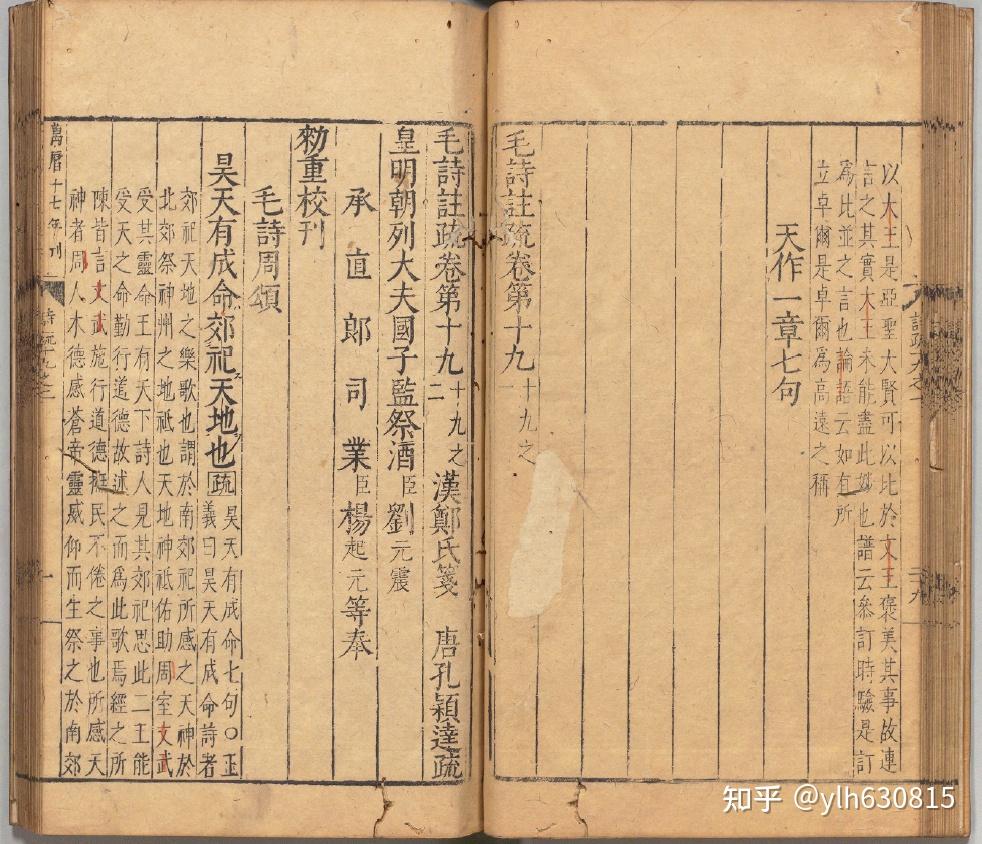 以大王是亞聖大賢可以比於文王褒美其事故連
言之其實大王未能盡此妙也譜云參訂時驗是訂
爲比並之言也論語云如有所
立卓爾是卓爾爲高遠之稱
天作一章七句
毛詩註疏卷第十九
十九之
一
毛詩註疏卷第十九
十九之
二
漢鄭氏箋 唐孔穎達疏
皇明朝列大夫國子監祭酒臣劉元震
承直郎司業臣楊起元等奉
勑重校刊
毛詩周頌
昊天有成命郊祀天地也疏
昊天有成命七句○正
義曰昊天有成命詩者
郊祀天地之樂歌也謂於南郊祀所感之天神於
北郊祭神州之地祇也天地神祇佑助周室文武
受其靈命王有天下詩人見其郊祀思此二王能
受天之命勤行道德故述之而爲此歌焉經之所
陳皆言文武施行道德撫民不倦之事也所感天
神者周人木德感蒼帝靈威仰而生祭之於南郊
萬曆十七年刊
知乎 @ylh630815